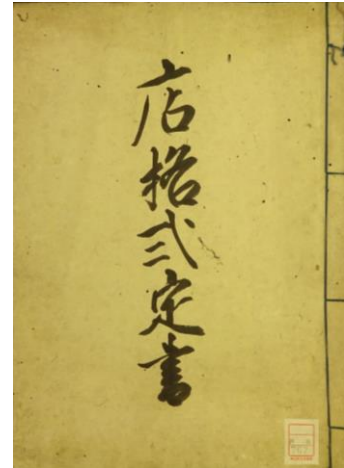 店格式定書